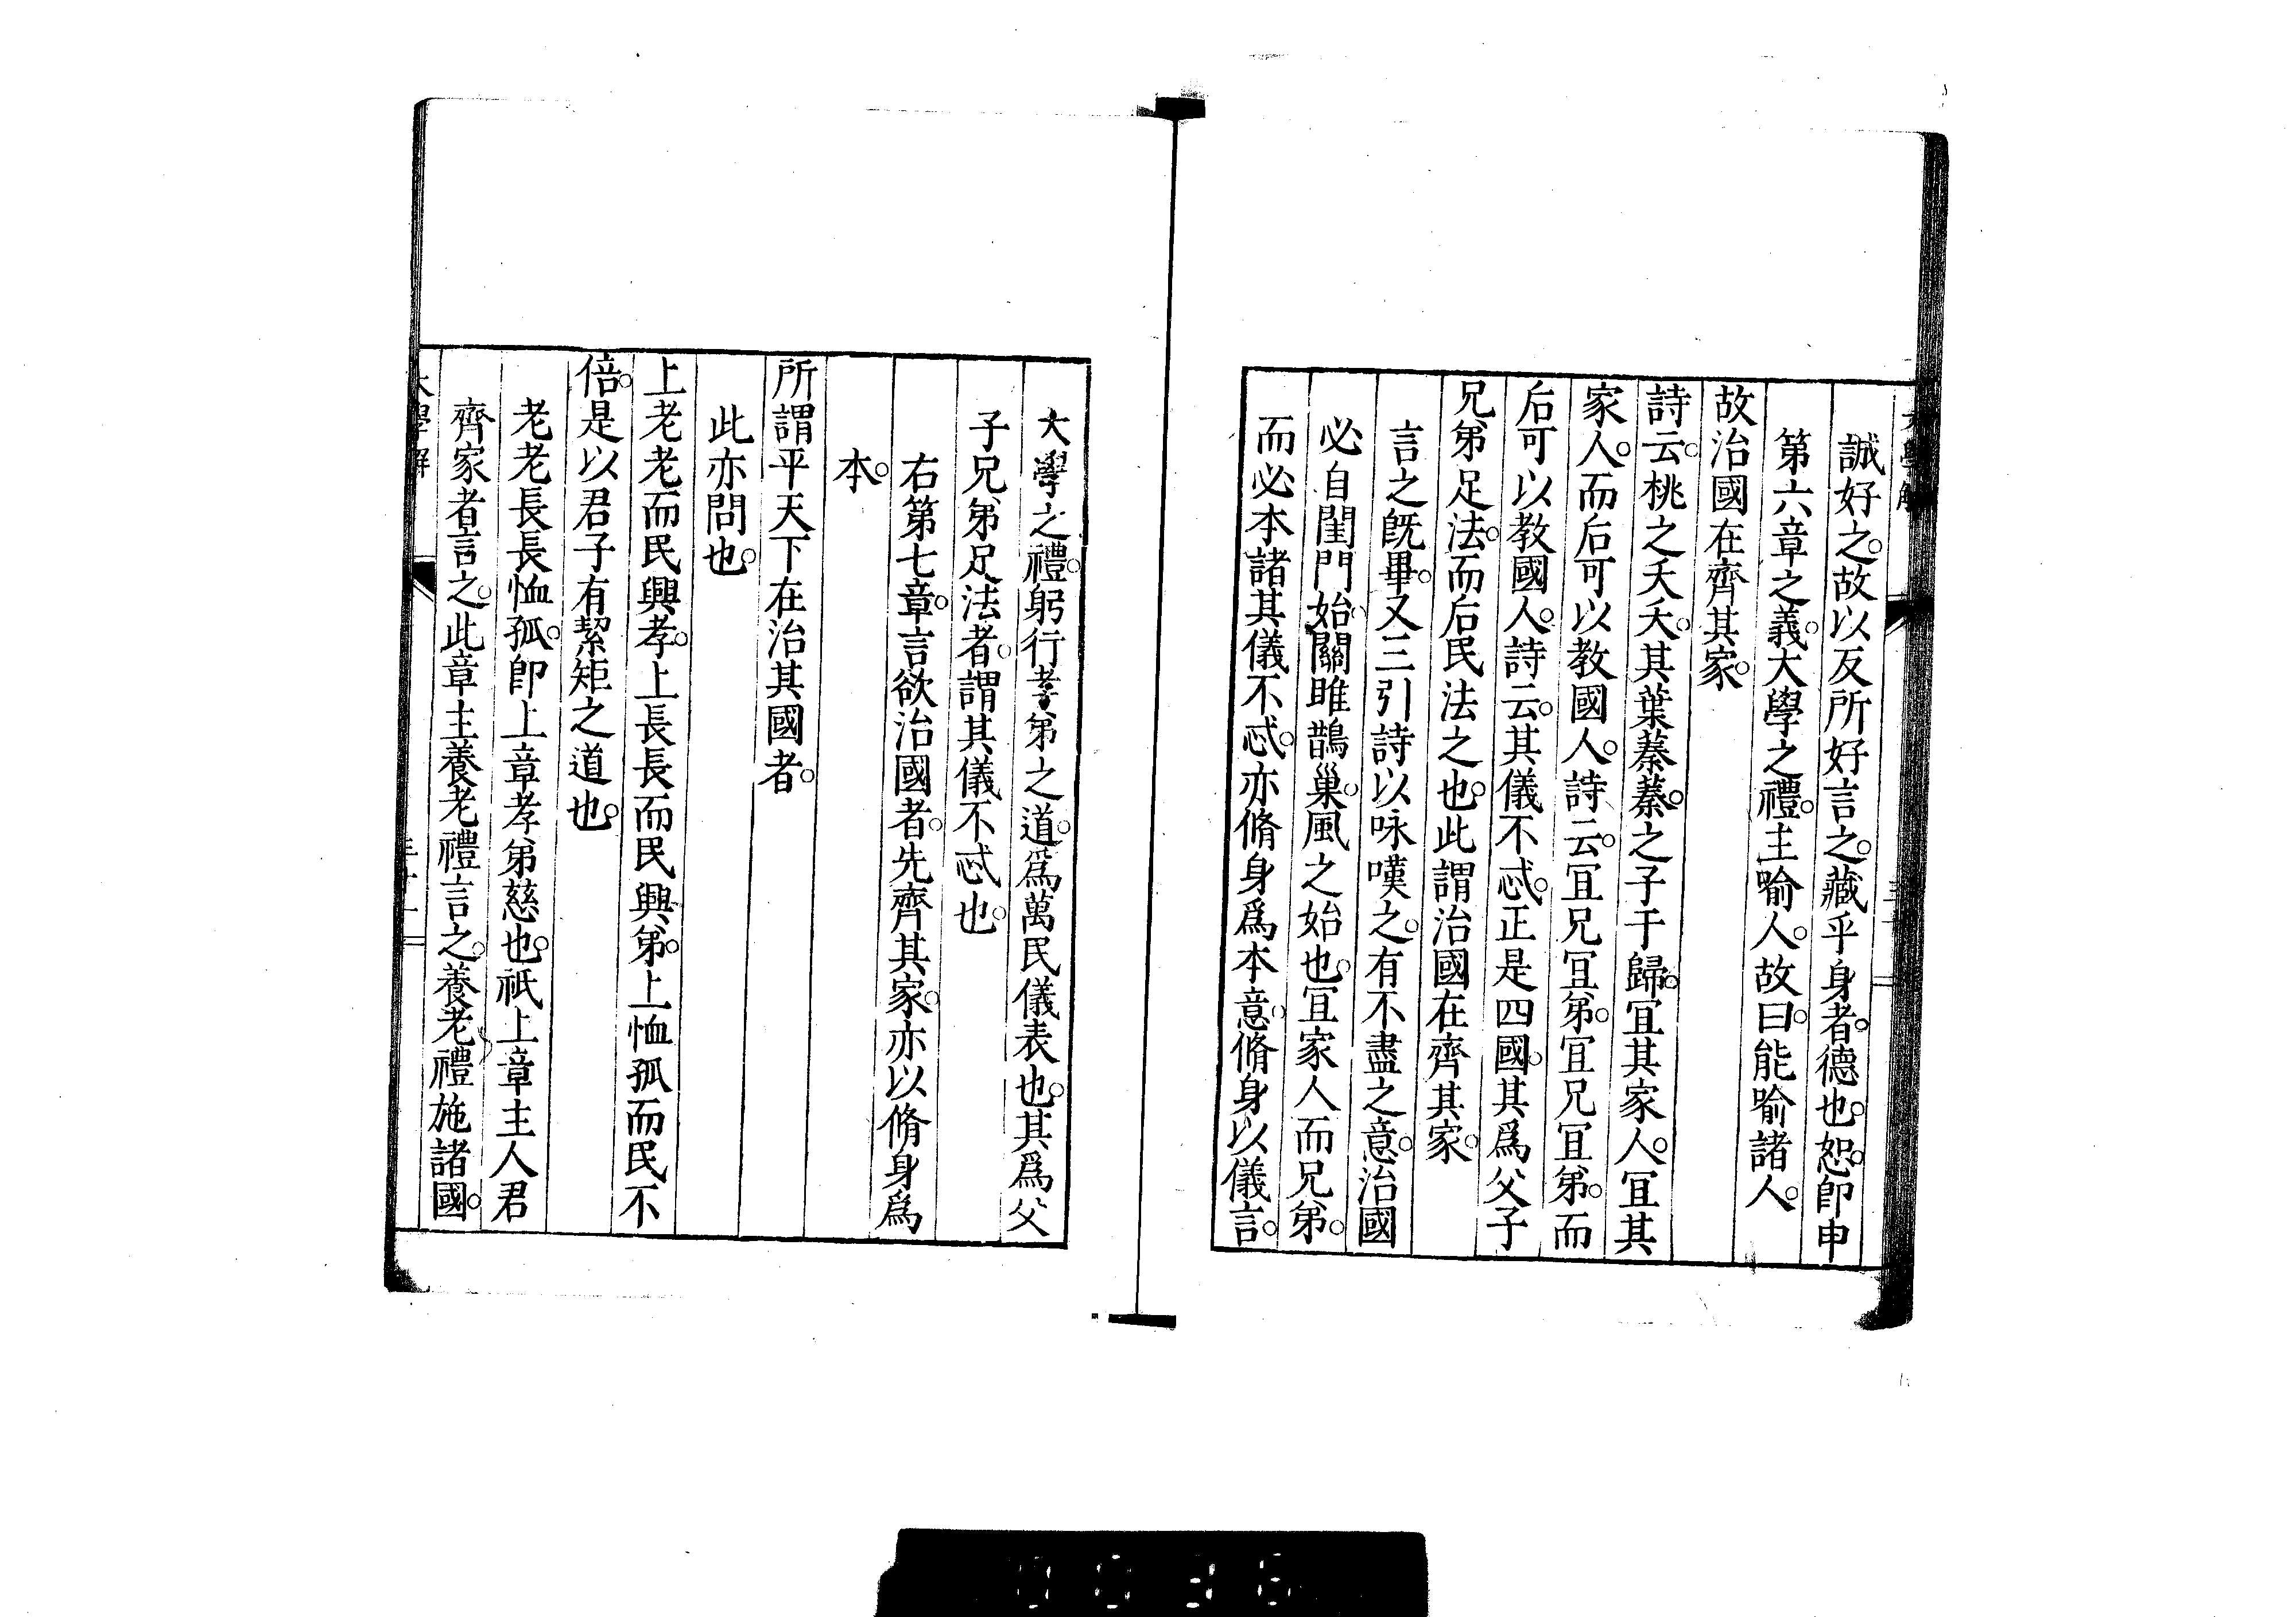 誠好之。故以反所好言之。藏乎身者。德也。恕。卽申
第六章之義。大學之禮。主喻人。故曰。能喻諸人。
故治國在齊其家。
詩云。桃之夭夭。其葉蓁蓁。之子于歸。冝其家人。冝其
家人。而后可以教國人。詩云。冝兄冝弟。冝兄冝弟。而
后可以教國人。詩云。其儀不忒。正是四國。其爲父子
兄弟足法。而后民法之也。此謂治國在齊其家。
言之旣畢。又三引詩以咏嘆之。有不盡之意。治國
必自閨門始。關雎鵲巢。風之始也。冝家人而兄弟。
而必本諸其儀不忒。亦脩身爲本意。脩身以儀言。
大學之禮。躬行孝弟之道。爲萬民儀表也。其爲父
子兄弟足法者。謂其儀不忒也。
右第七章。言欲治國者。先齊其家。亦以脩身爲
本。
所謂平天下在治其國者。
此亦問也。
上老老而民興孝。上長長而民興弟。上恤孤而民不
倍。是以君子有絜矩之道也。
老老長長恤孤。卽上章孝弟慈也。祇上章主人君
齊家者言之。此章主養老禮言之。養老禮施諸國。
大學解
0036